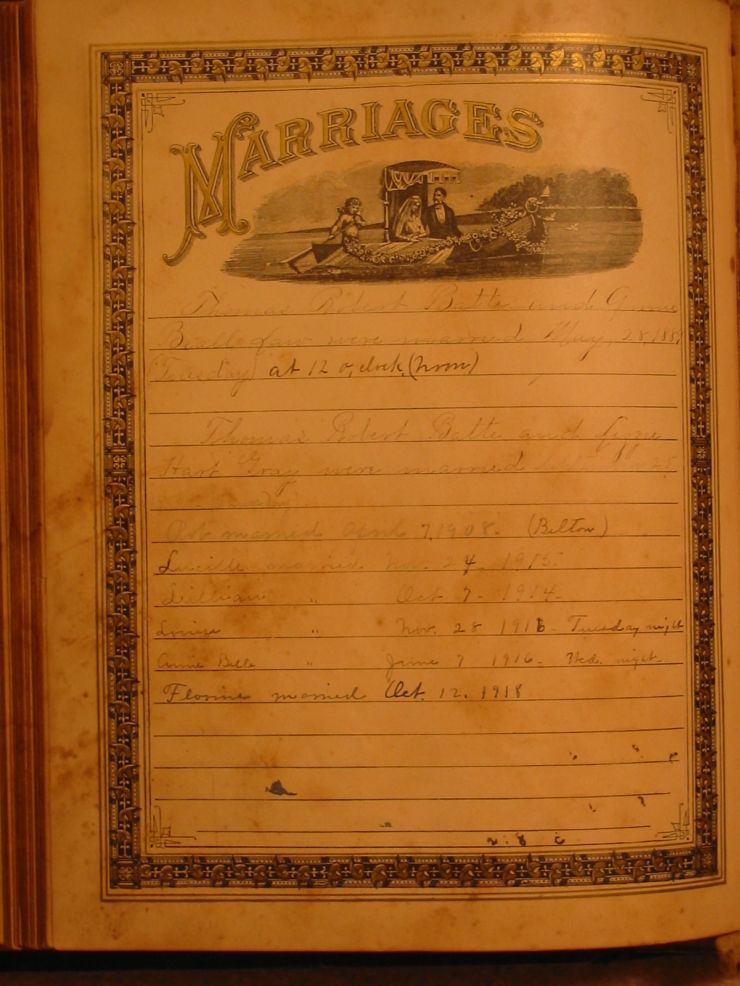 MARRIAGES
Thomas Robert Butte and
were married May, 28,
(Tuesday) at 12 o,clock, (noon)
Thomas Robert Butte and Lizzie
Hart Gray were married
married April 7, 1908. (Belton)
Lucille married 24, 1915.
Lillian " Oct 7 - 1914.
Louise " Nov. 28 1916 - Tuesday night
Annie Belle " June 7 1916 - Wed. night.
Florine married Oct. 12. 1918